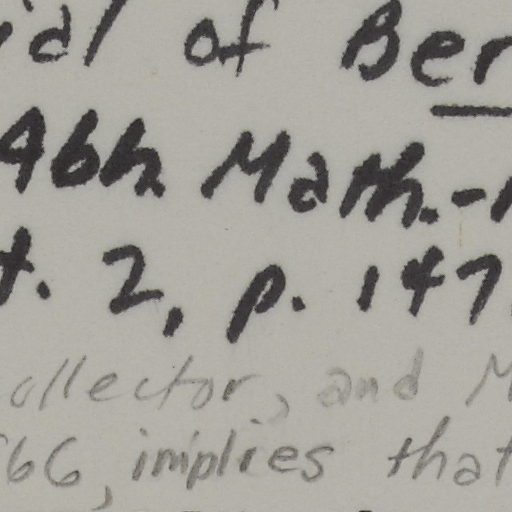 of Ber
Abh Math.-
t. 2, p. 147
ollector, and M
66, implies that